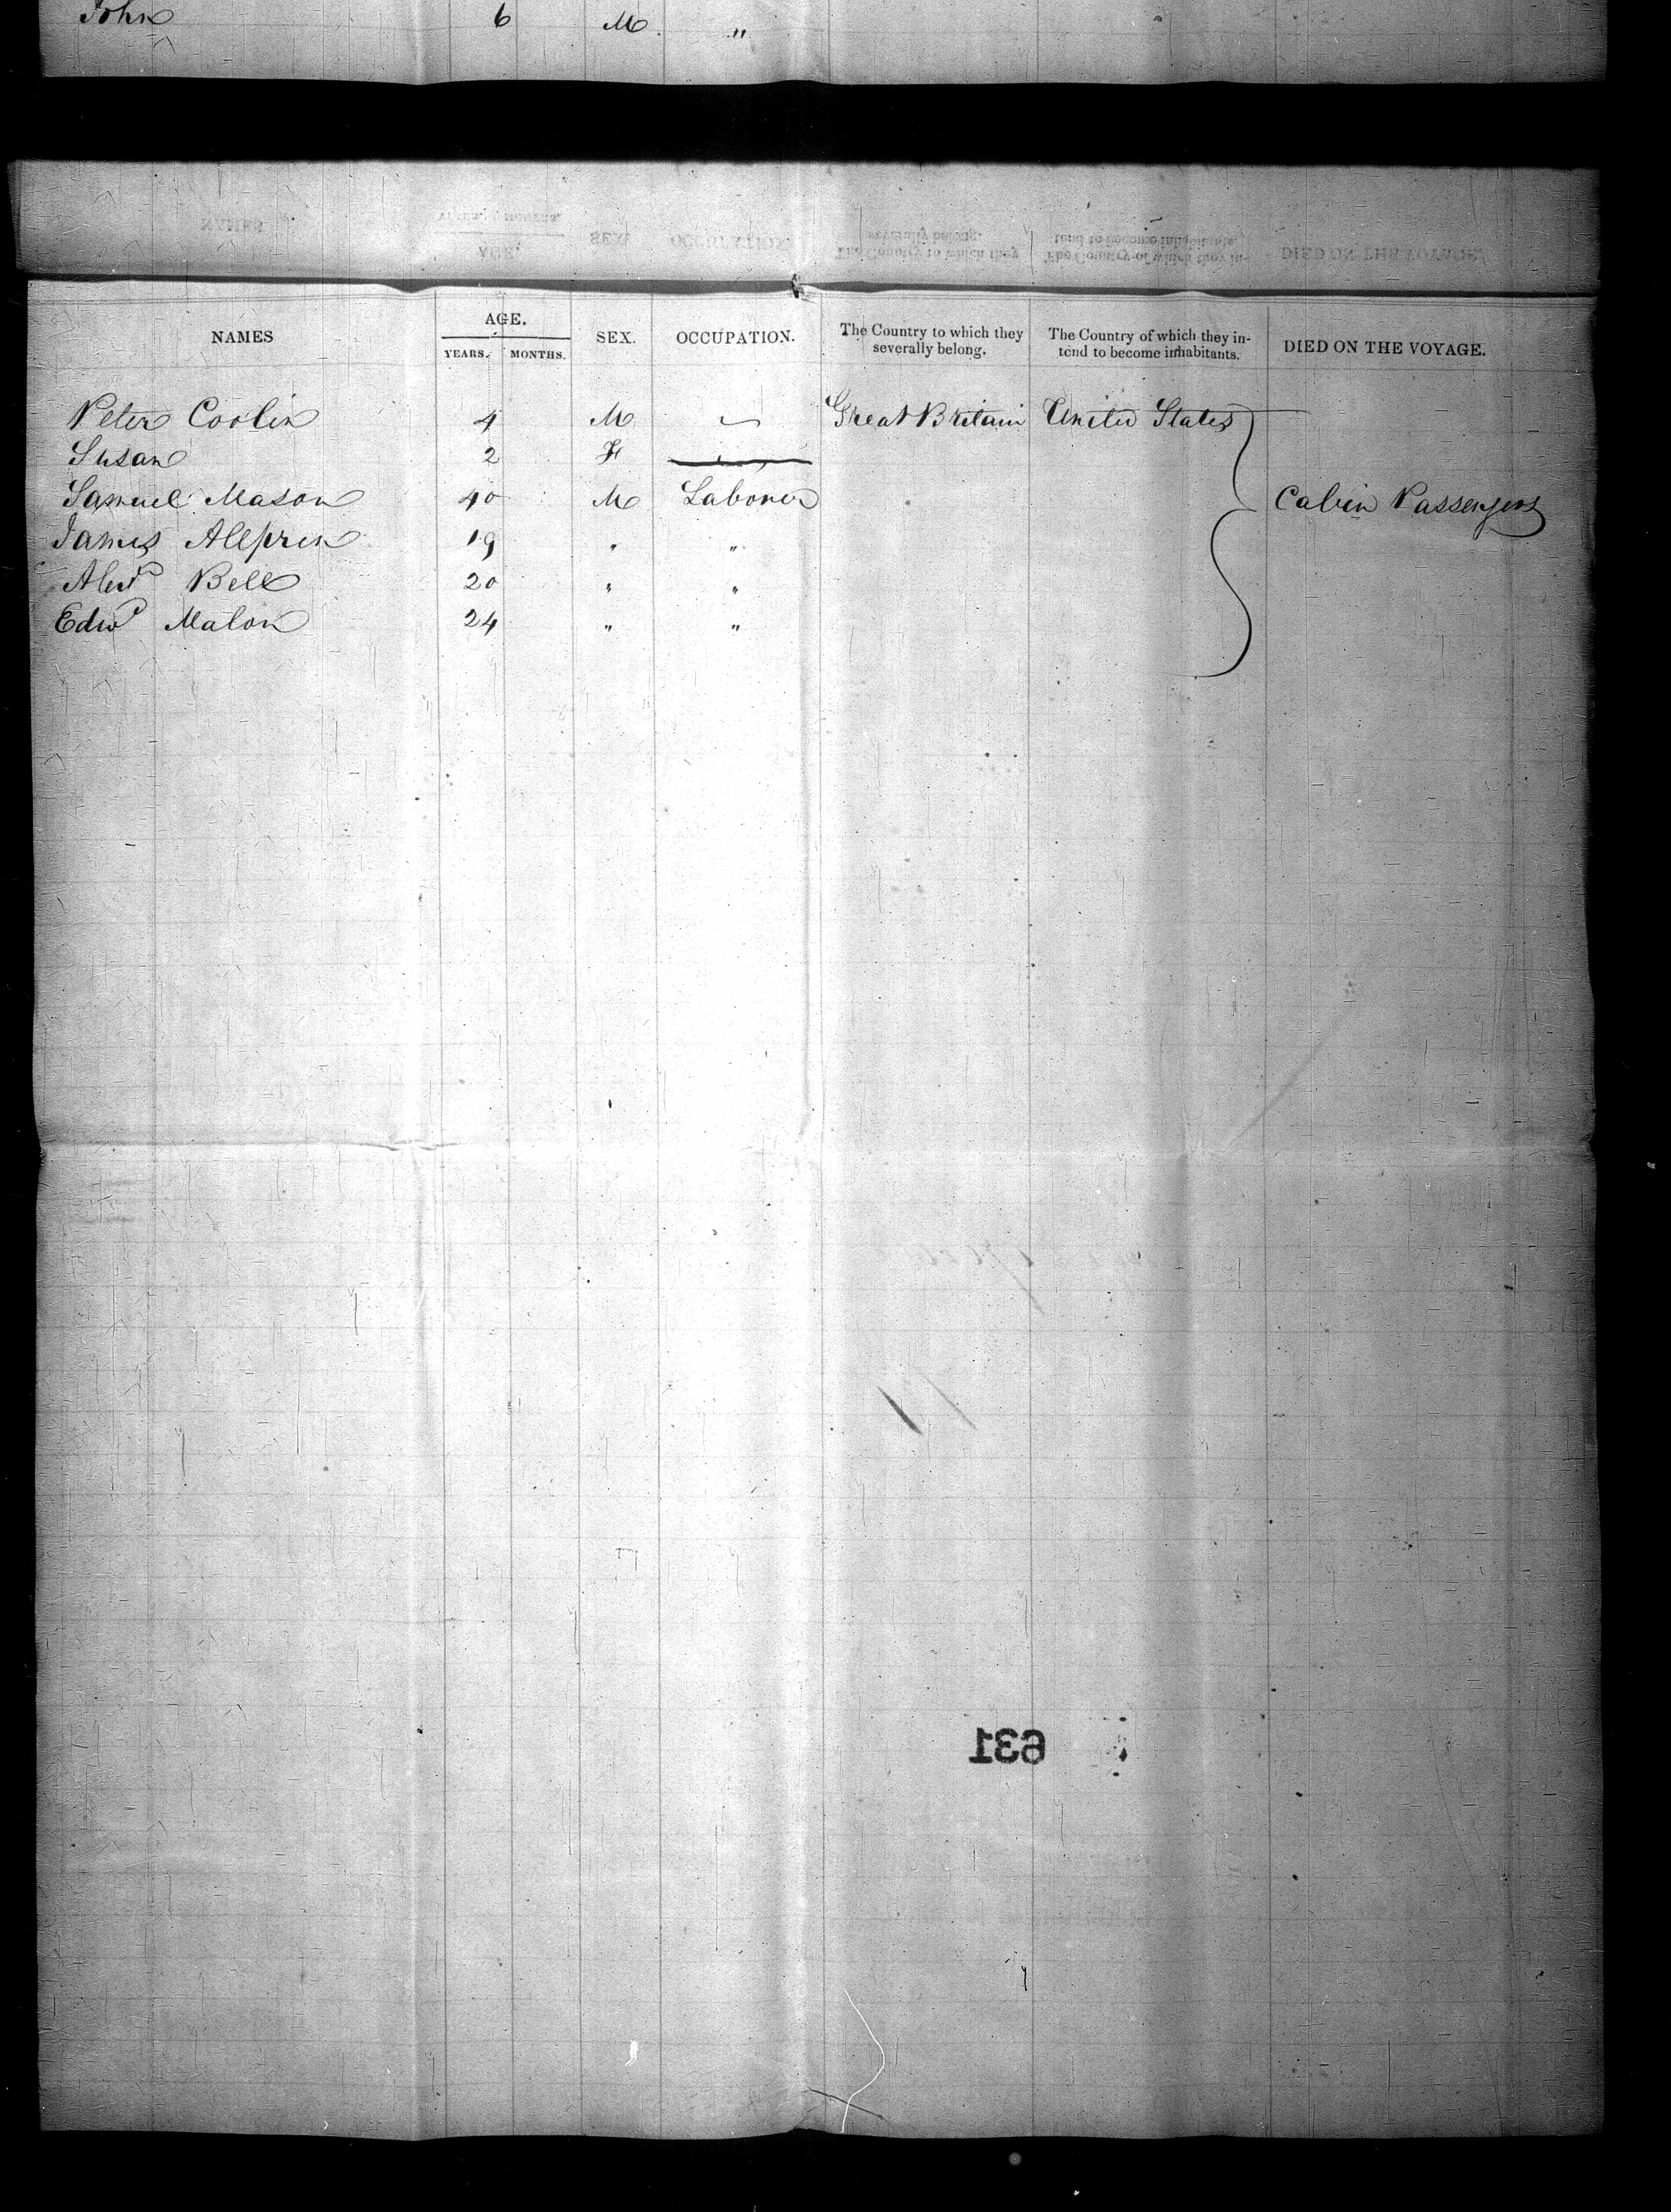 John 6 M "
NAMES AGE. YEARS. MONTHS. SEX. OCCUPATION. The Country to which they severally belong. The Country of which they intend to become inhabitants. DIED ON THE VOYAGE.
Peter Coolin 4 M Great Britain United States
Susan 2 F
Samuel Mason 40 M Laborer Cabin Passengers
James 19 " "
Alexr Bell 20 " "
Edwd Malon 24 " "
631